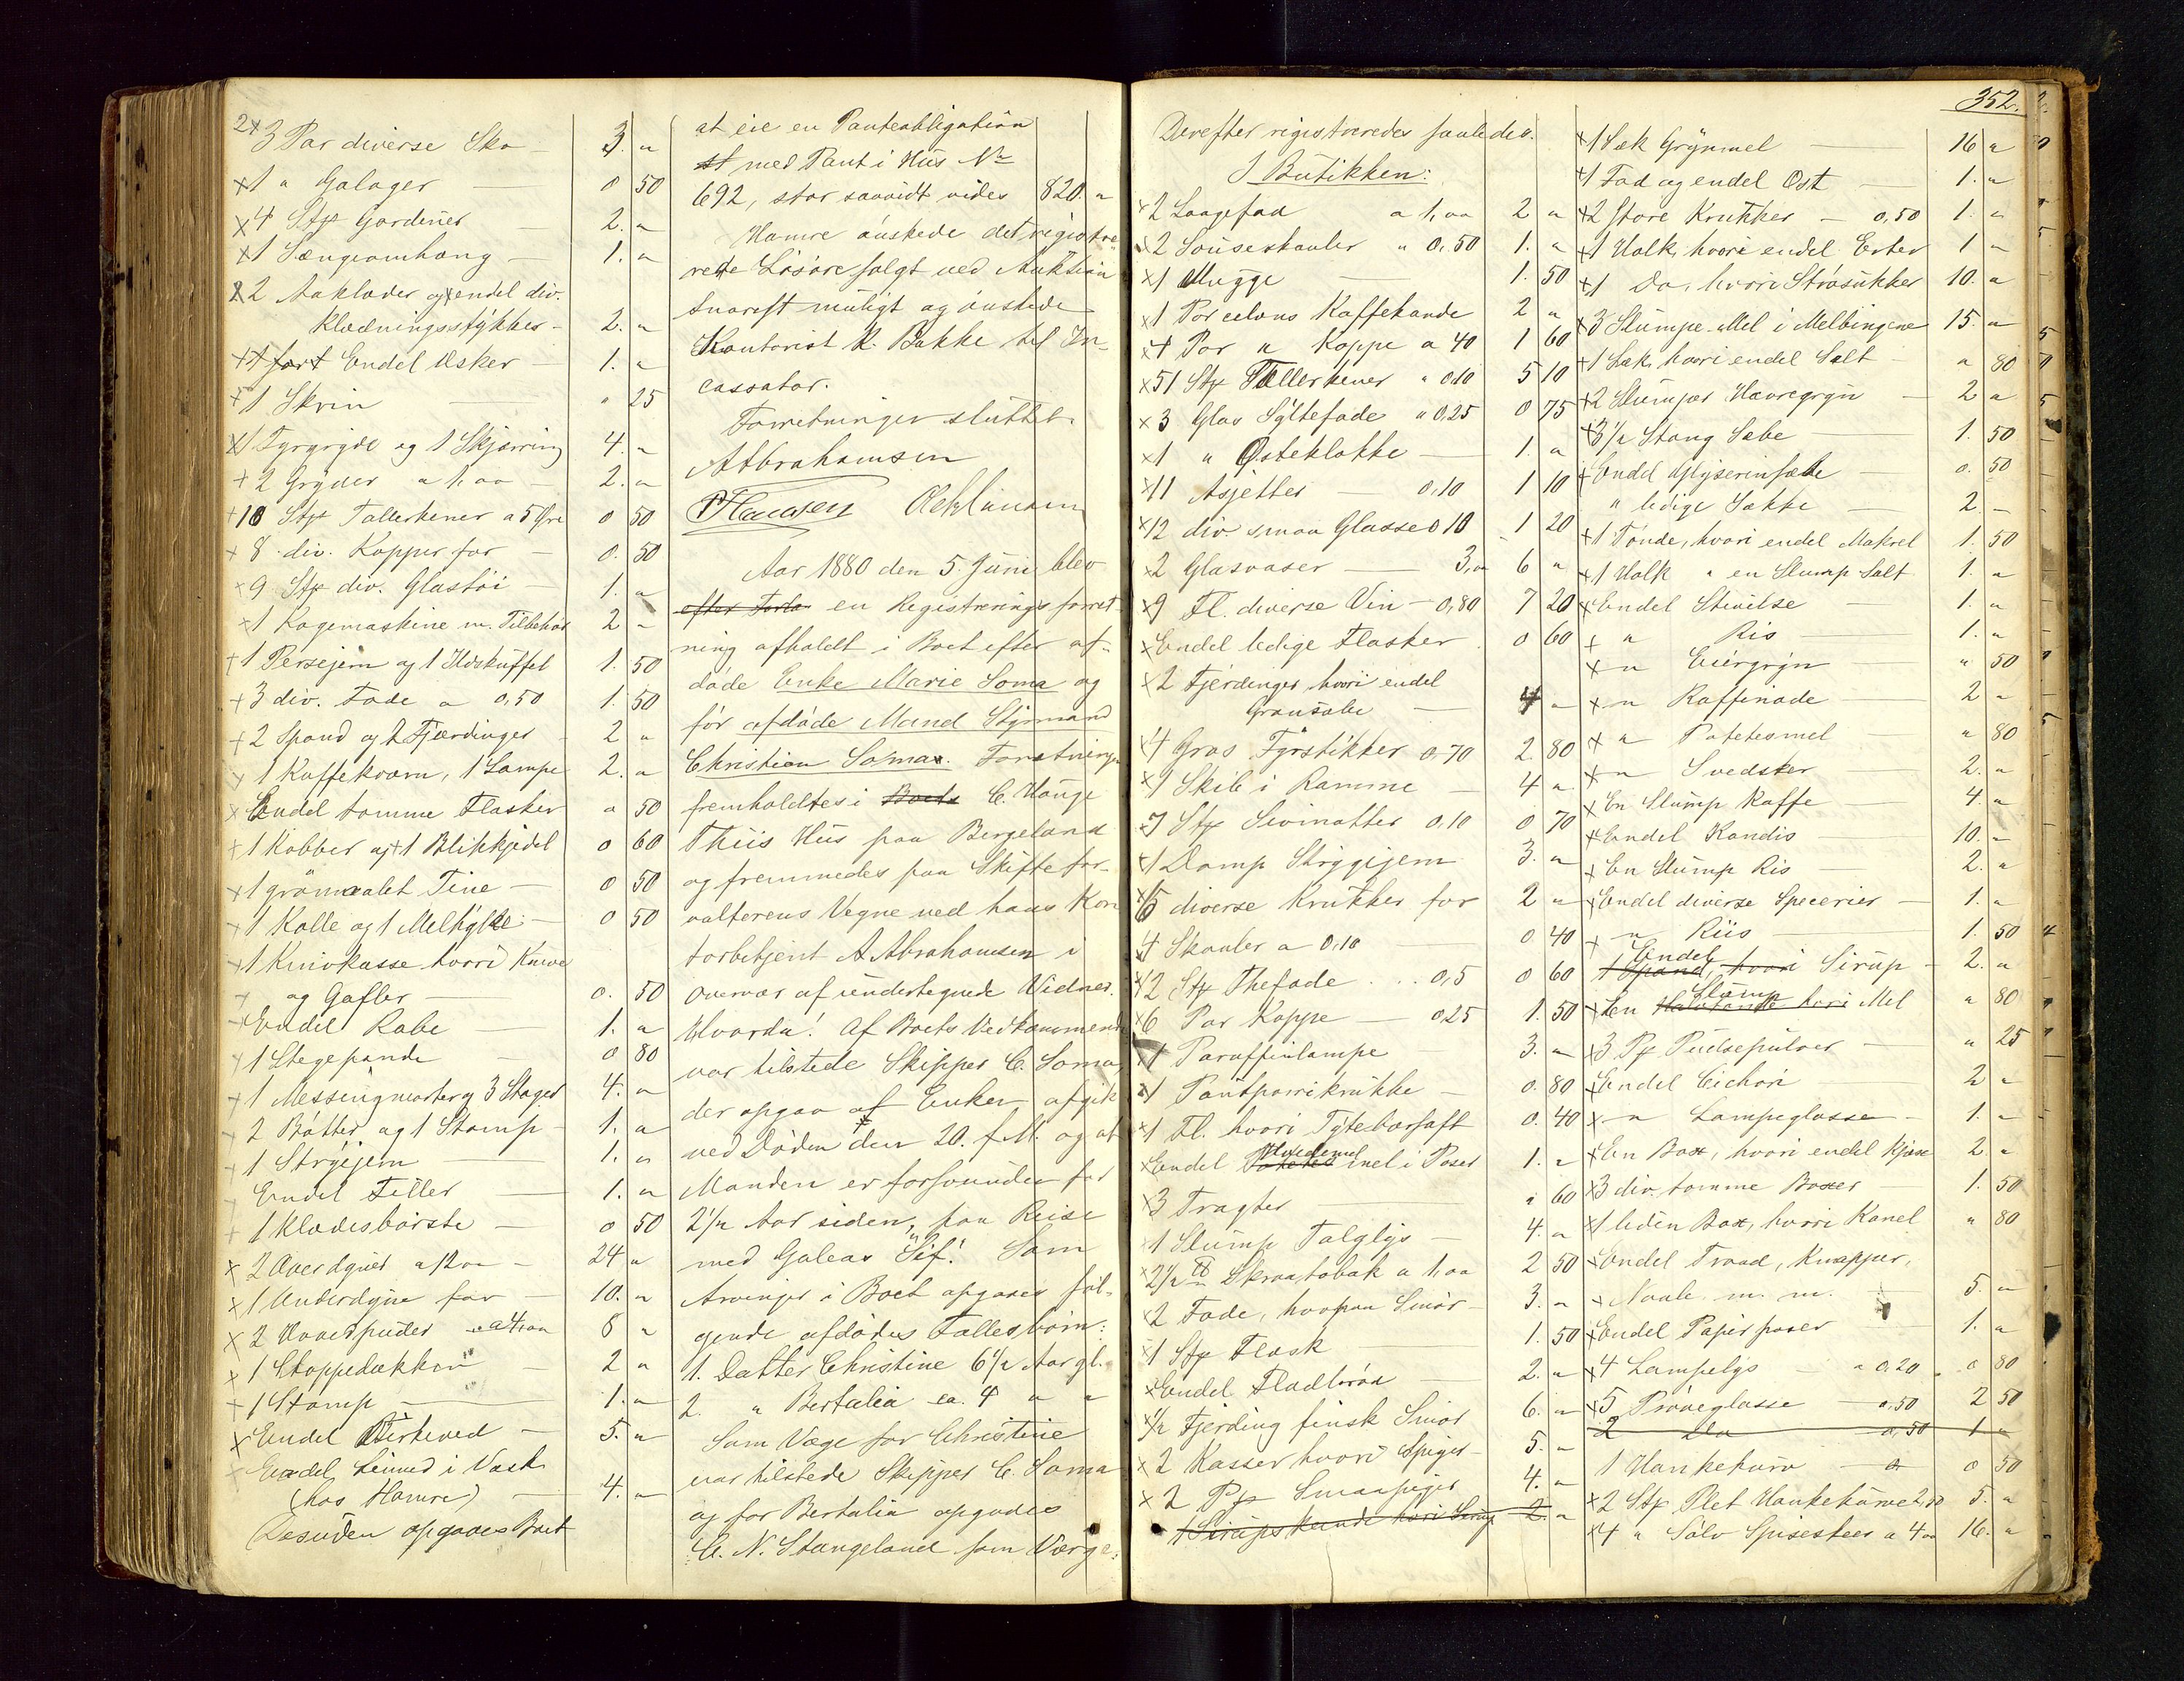 3 Par diverse Sko — 3. "
×1 " Galoger — 0 50
×4 Stk Gardiner — 2. "
×1 Sængeomhæng — 1. "
2 Aaklæder og endel div.
Klædningsstykker — 2. "
Endel Æsker — 1. "
+1 Skrin — " 25
1 Fyrgryde og 1 Skjærring 4. "
+2 Gryder a 1,00 — 2. "
+10 Stk Tallerkener a 5 Øre 0 50
+8 div. Kopper for — 0. 50
×9 Stk div. Glastöi — 1. "
×1 Kogemaskine m. Tilbehör 2 "
+1 Persejern og 1 Ildskuffel 1. 50
+3 div. Fade a 0,50 1. 50
+2 Spand og 2 Fjerdinger 2 "
×1 Kaffekværn, 1 Lampe 2. "
×Endel tomme Flasker " 50
+1 Kobber og 1 Blikkjedel 0 60
×1 grönmalet Tine — 0 50
×1 Kolle og 1 Melhylde — 0 50
×1 Knivkasse hvori Knive
og Gafler — 0. 50
Endel Rabe — 1. "
×1 Stegepande — 0 80
+1 Messingmorter og 3 Stager 4. "
2 Bötter og 1 Stamp — 1. "
+1 Strygejern — 1. "
Endel Filler — 1. "
+1 Klædesbörste — 0 50
×2 Overdyner a 12 " — 24 "
×1 Underdyne for — 10. "
×2 Hovedpuder a 4,00 8 "
×1 Stoppedækken — 2 "
+1 Stamp — 1. "
×Endel Birkeved — 5. "
Endel Linned i Vask
(hos Hamre) — 4. "
Desuden opgaves Boet
at eie en Panteobligation
med Pant i Hus No
692, stor saavidt vides 820. "
Hamre önskede det registre-
rede Lösöre solgt ved Auktion
snarest muligt og önskede
Kontorist R. Bakke til In-
cassator.
Forretningen sluttet.
A Abrahamsen
Aar 1880 den 5. Juni blev
en Registreringsforret-
ning afholdt i Boet efter af-
döde Enke Marie Soma og
för afdöde Mand Styrmand
Christian Soma. Forretningen
fremholdtes i Boets C. Hauge
Thiis Hus paa Bergeland
og fremmedes paa Skiftefor-
valterens Vegne ved hans Kon
torbetjent A. Abrahamsen i
Overvær af undertegnede Vidner.
Hvorda! Af Boets Vedkommende
var tilstede Skipper C. Soma,
der opgav at Enken afgik
ved Döden den 20. f. M. og at
Manden er forsvunden for
2 1/2 Aar siden, paa Reise
med Galeas "Sif". Som
Arvinger i Boet opgaves föl-
gende afdödes Fællesbörn:
1. Datter Christine 6 1/2 Aar gl.
2. " Bertalia ca. 4 " "
Som Værge for Christine
var tilstede Skipper C. Soma
og for Bertalia opgaves
C. N. Stangeland som Værge.
352.
Derefter registreredes saaledes.
I Butikken:
2 Laagefad a 1,00 2 "
2 Souseskaaler " 0,50 1. "
×1 Mugge — 1. 50
×1 Porcelæns Kaffekande 2 "
×4 Par " Koppe a 40 1 60
×51 Stk Tallerkener " 0,10 5 10
×3 Glas Syltefade " 0,25 0 75
×1 " Osteklokke — 1. "
×11 Asjetter — 0,10 1 10
×12 div. smaa Glasse 0 10 1 20
×2 Glasvaser — 3," 6 "
×9 Fl. diverse Vin — 0,80 7 20
×Endel ledige Flasker 0 60
×2 Fjerdinger hvori endel
Grønsæbe — 4 "
×4 Gros Fyrstikker 0,70 2. 80
×1 Skib i Ramme — 4 "
×7 Stk Sivmatter 0,10 0 70
×1 Damp Strygejern 3. "
diverse Krukker for 2 "
×4 Skaaler a 0,10 0 40
×12 Stk Thefade . . . 0,5 0 60
×6 Par Koppe — 0,25 1. 50
×1 Paraffinlampe — 3. "
×1 — 0. 80
×1 Fl. hvori Tytebærsaft 0. 40
×Endel Hvedemel i Poser 1. "
×3 Tragter — " 60
1 Slump Talglys — 4. "
×2 1/2 ℔ Skraatobak a 1,00 2 50
×2 Fade, hvorpaa Smör — 3. "
×1 Stk Flæsk — 1. 50
×Endel Fladbröd — 2. "
×1/2 Fjerding finsk Smör 6. "
×2 Kasser hvori Spiger — 5. "
×2 Pk Smaaspiger 4. "
1 Sirupskande hvori Sirup 2. "
×1 Sæk Grynmel — 16 "
×1 Fad og endel Ost — 1. "
×2 store Krukker — 0,50 1. "
×1 Halk, hvori endel Erter 1 "
×1 Do, hvori Strösukker 10. "
×3 Slumpe Mel i Melbingene 15. "
×1 Sæk hvori endel Salt — " 80
×2 Slumper Havregryn — 2 "
×3 1/2 Stang Sæbe — 1. 50
×Endel Glyserinsæbe — 0. 50
" ledige Sække — 2. —
×1 Tönde, hvori endel Makrel 1. 50
×1 Halk " en Slump Salt 1. "
×Endel Stivelse — 1. "
× " Ris 1. "
× " — " 50
× " Raffinade — 2 "
× " Potetesmel — " 80
× " Svedsker — 2. "
×En Slump Kaffe — 4. "
×Endel Kandis — 10. "
×En Slump Ris — 2. "
×Endel diverse Specerier — 1. "
× " Riis — 1. 50
Endel
1 Spand, hvori Sirup — 2. "
Slump
×En Halvtönde hvori Mel " 80
×3 Pk Pudsepulver — " 25
×Endel Cichori 2 "
× " Lampeglasse — 1. "
×En Box, hvori endel Kjæx 2. "
×3 div. tomme Boxer — 1. 50
×1 liden Box, hvori Kanel " 80
×Endel Traad, Knapper,
× Naale m. m. — 5. "
×Endel Papirposer — 1. "
×4 Lampelys " 0,20 " 0 80
×5 Pröveglasse — 0,50 2 50
2 Do 0,50 1 "
1 Hankekurv — 0 50
×2 Stk Plet Hankekurve 2,50 5. "
×4 " Sölv Spiseskeer a 4 " 16. "